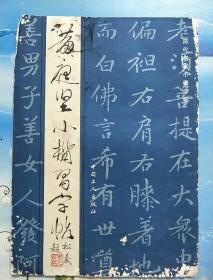 老菩提在大衆
偏袒右肩右膝著地
而白佛言希有世尊
中国工人出版社
黄庭堅小楷習字帖
善男子善女人發阿